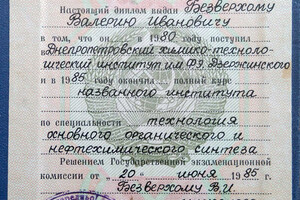 Настоящий диплом выдан Безверхому
Валерию Ивановичу
в том, что он в 1980 году поступил
в Днепропетровский химико-техноло-
гический институт им. Ф.Э. Дзержинского
и в 1985 году окончил полный курс
названного института
по специальности технология
основного органического и
нефтехимического синтеза
Решением Государственной экзаменационной
комиссии от "20" июня 1985 г.
Безверхому В.И.